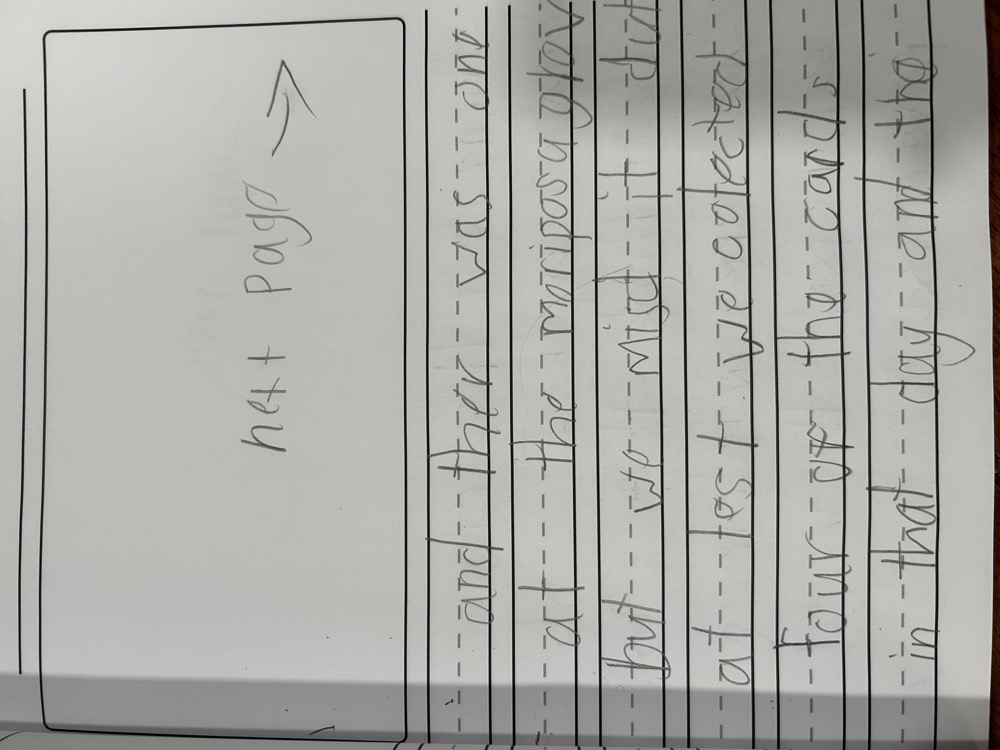 next Page →
and ther was one
at the mariposa grov
but we misd it but
at lest we colected
four of the cards
in that day and the